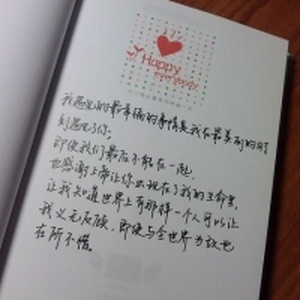 Happy
everybody
我遇见的最幸福的事情是我在最美丽的时
刻遇见了你。
即使我们最后不能在一起,
也感谢上帝让你出现在了我的生命里,
让我知道世界上有那样一个人可以让
我义无反顾,即使与全世界为敌也
在所不惜。